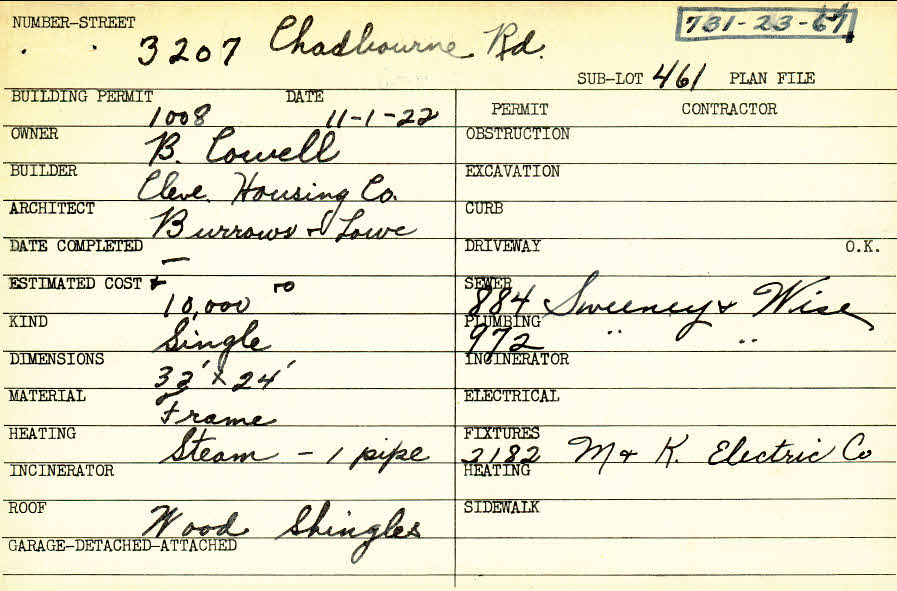 NUMBER-STREET 3207 Chadbourne Rd. 731-23-67
SUB-LOT 461 PLAN FILE
BUILDING PERMIT 1008 DATE 11-1-22
PERMIT CONTRACTOR
OWNER B. Cowell
OBSTRUCTION
BUILDER Cleve. Housing Co.
EXCAVATION
ARCHITECT Burrows & Lowe
CURB
DATE COMPLETED —
DRIVEWAY O.K.
ESTIMATED COST 10,000
SEWER 884 Sweeney & Wise
KIND Single
PLUMBING 972 " "
DIMENSIONS 32' x 24'
INCINERATOR
MATERIAL Frame
ELECTRICAL
HEATING Steam - 1 pipe
FIXTURES 3182 M & K. Electric Co
INCINERATOR
HEATING
ROOF Wood Shingles
SIDEWALK
GARAGE-DETACHED-ATTACHED